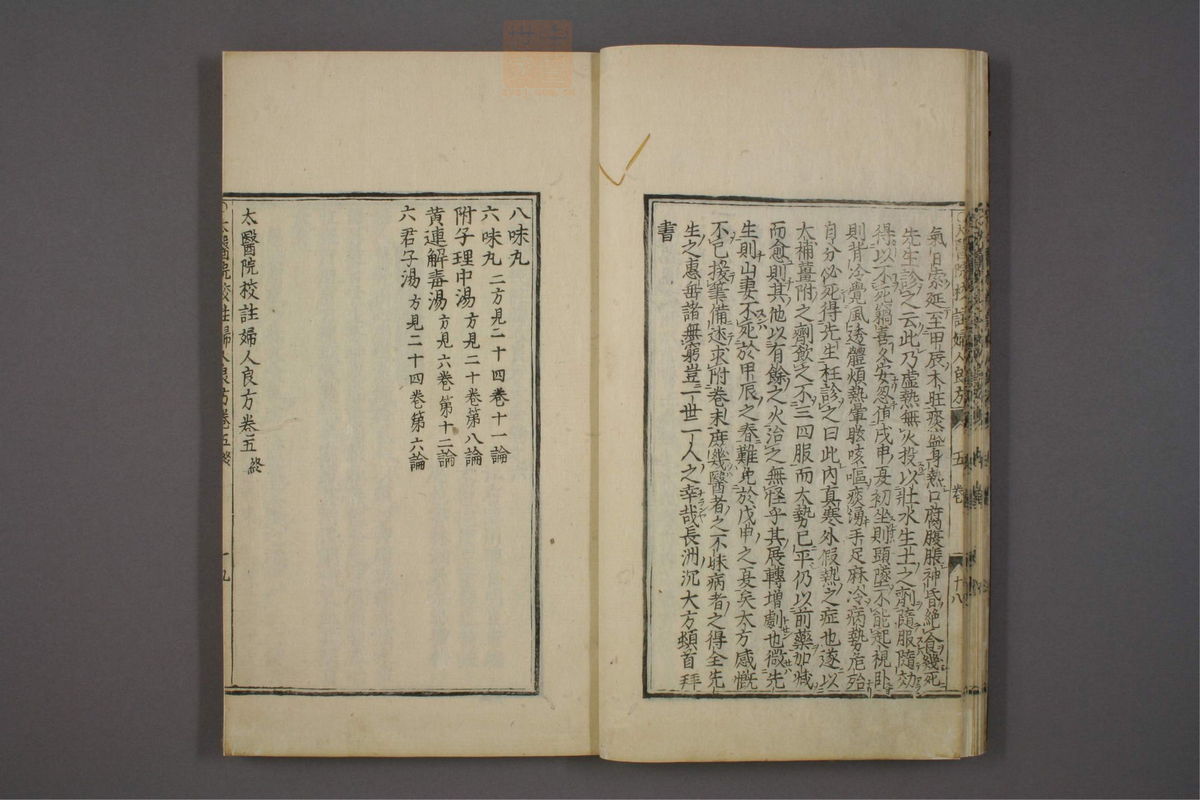 太醫院校註婦人良方 五卷 十八
氣日索延至甲辰木旺痰盆身熱口腐腹脹神昏絶食幾死
先生診之云此乃虛熱無火投以壯水生土之劑隨服隨効
得以不死竊喜久安忽值戊申夏初坐則頭墜不能起視臥
則背冷覺風透體煩熱暈眩咳嘔痰湧手足麻冷病勢危殆
自分必死得先生枉診之曰此內真寒外假熱之症也遂以
太補薑附之劑飲之不三四服而太勢已平仍以前藥加減
而愈則其他以有餘之火治之無怪乎其展轉增劇也微先
生則山妻不死於甲辰之春難免於戊申之夏矣太方感慨
不已援筆備述求附卷末庶幾醫者之不昧病者之得全先
生之惠垂諸無窮豈一世一人之幸哉長洲沉大方頓首拜
書
八味丸
六味丸 二方見二十四卷十一論
附子理中湯 方見二十卷第八論
黃連解毒湯 方見六卷第十二論
六君子湯 方見二十四卷第六論
太醫院校註婦人良方卷五終
太醫院校註婦人良方卷五終 十九